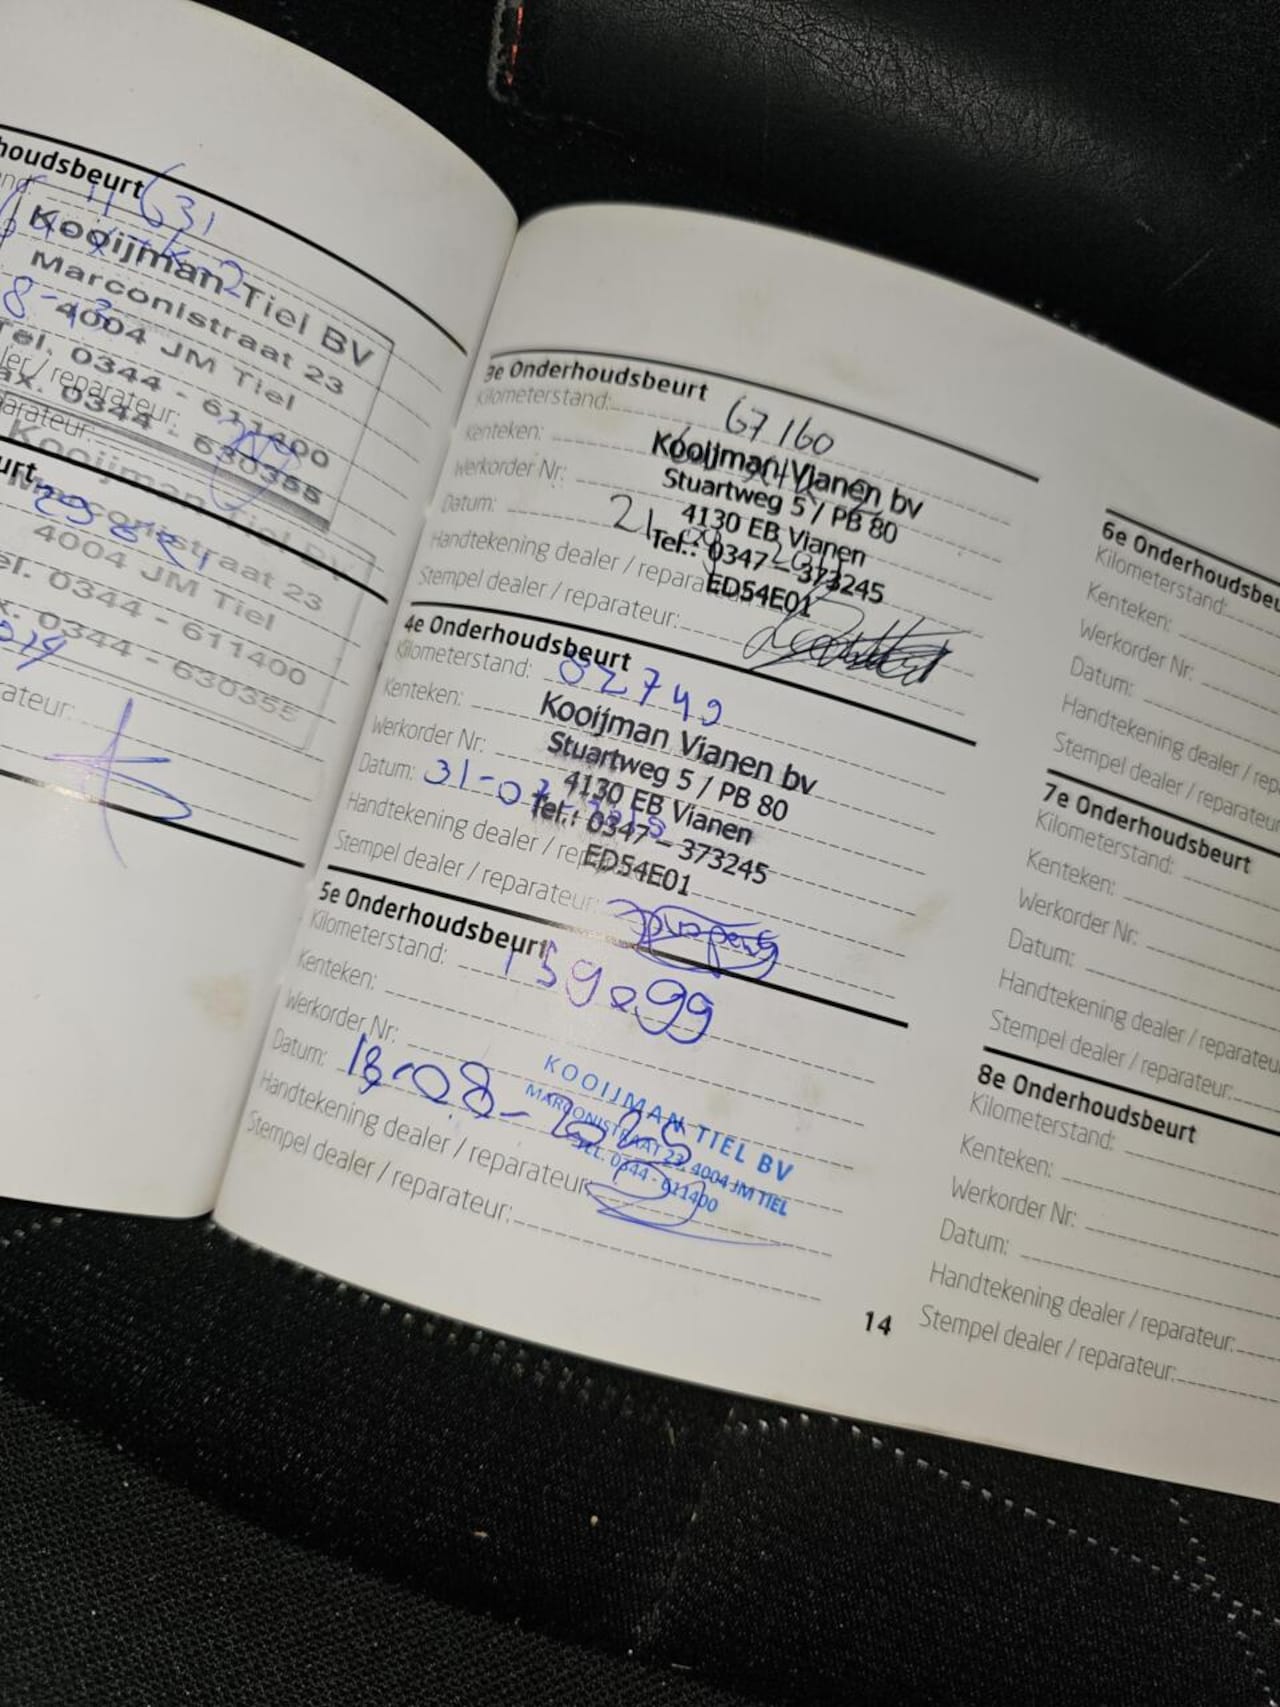 houdsbeurt
631
Kooijman Tiel BV
Marconistraat 23
4004 JM Tiel
Tel. 0344 - 611400
0344 - 630355
reparateur:
Kooijman Tiel
Marconistraat 23
4004 JM Tiel
0344 - 611400
0344 - 630355
3e Onderhoudsbeurt
Kilometerstand: 67160
Kenteken:
Werkorder Nr:
Datum: 21
Handtekening dealer / reparateur:
Stempel dealer / reparateur:
Kooijman Vianen bv
Stuartweg 5 / PB 80
4130 EB Vianen
Tel.: 0347 – 373245
ED54E01
4e Onderhoudsbeurt
Kilometerstand: 82749
Kenteken:
Werkorder Nr:
Datum: 31-07-2015
Handtekening dealer / reparateur:
Stempel dealer / reparateur:
Kooijman Vianen bv
Stuartweg 5 / PB 80
4130 EB Vianen
Tel.: 0347 – 373245
ED54E01
5e Onderhoudsbeurt
Kilometerstand:
Kenteken:
Werkorder Nr:
Datum:
Handtekening dealer / reparateur:
Stempel dealer / reparateur:
KOOIJMAN TIEL BV
MARCONISTRAAT 23, 4004 JM TIEL
TEL. 0344 - 611400
14
6e Onderhoudsbeu
Kilometerstand:
Kenteken:
Werkorder Nr:
Datum:
Handtekening dealer / rep
Stempel dealer / reparateur
7e Onderhoudsbeurt
Kilometerstand:
Kenteken:
Werkorder Nr:
Datum:
Handtekening dealer / reparateu
Stempel dealer / reparateur:
8e Onderhoudsbeurt
Kilometerstand:
Kenteken:
Werkorder Nr:
Datum:
Handtekening dealer / reparateur:
Stempel dealer / reparateur: